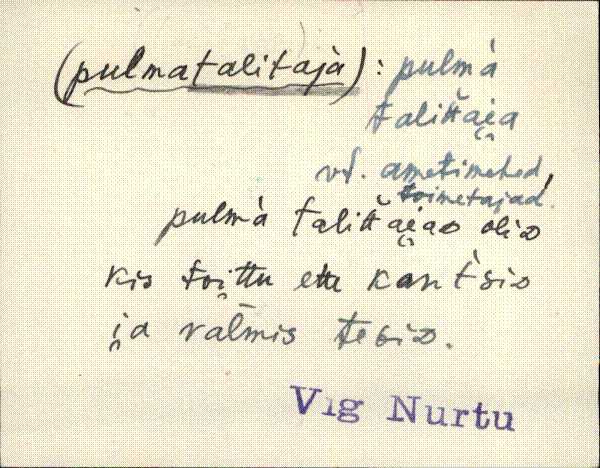 (pulmatalitaja): pulmà
talittai̯a
vt. ametimehed,
toimetajad.
pulmà talittai̯aᴅ oliᴅ
kis toi̯ttu ette kanᴅsiᴅ
i̯a valmis teɢiᴅ.
Vig Nurtu